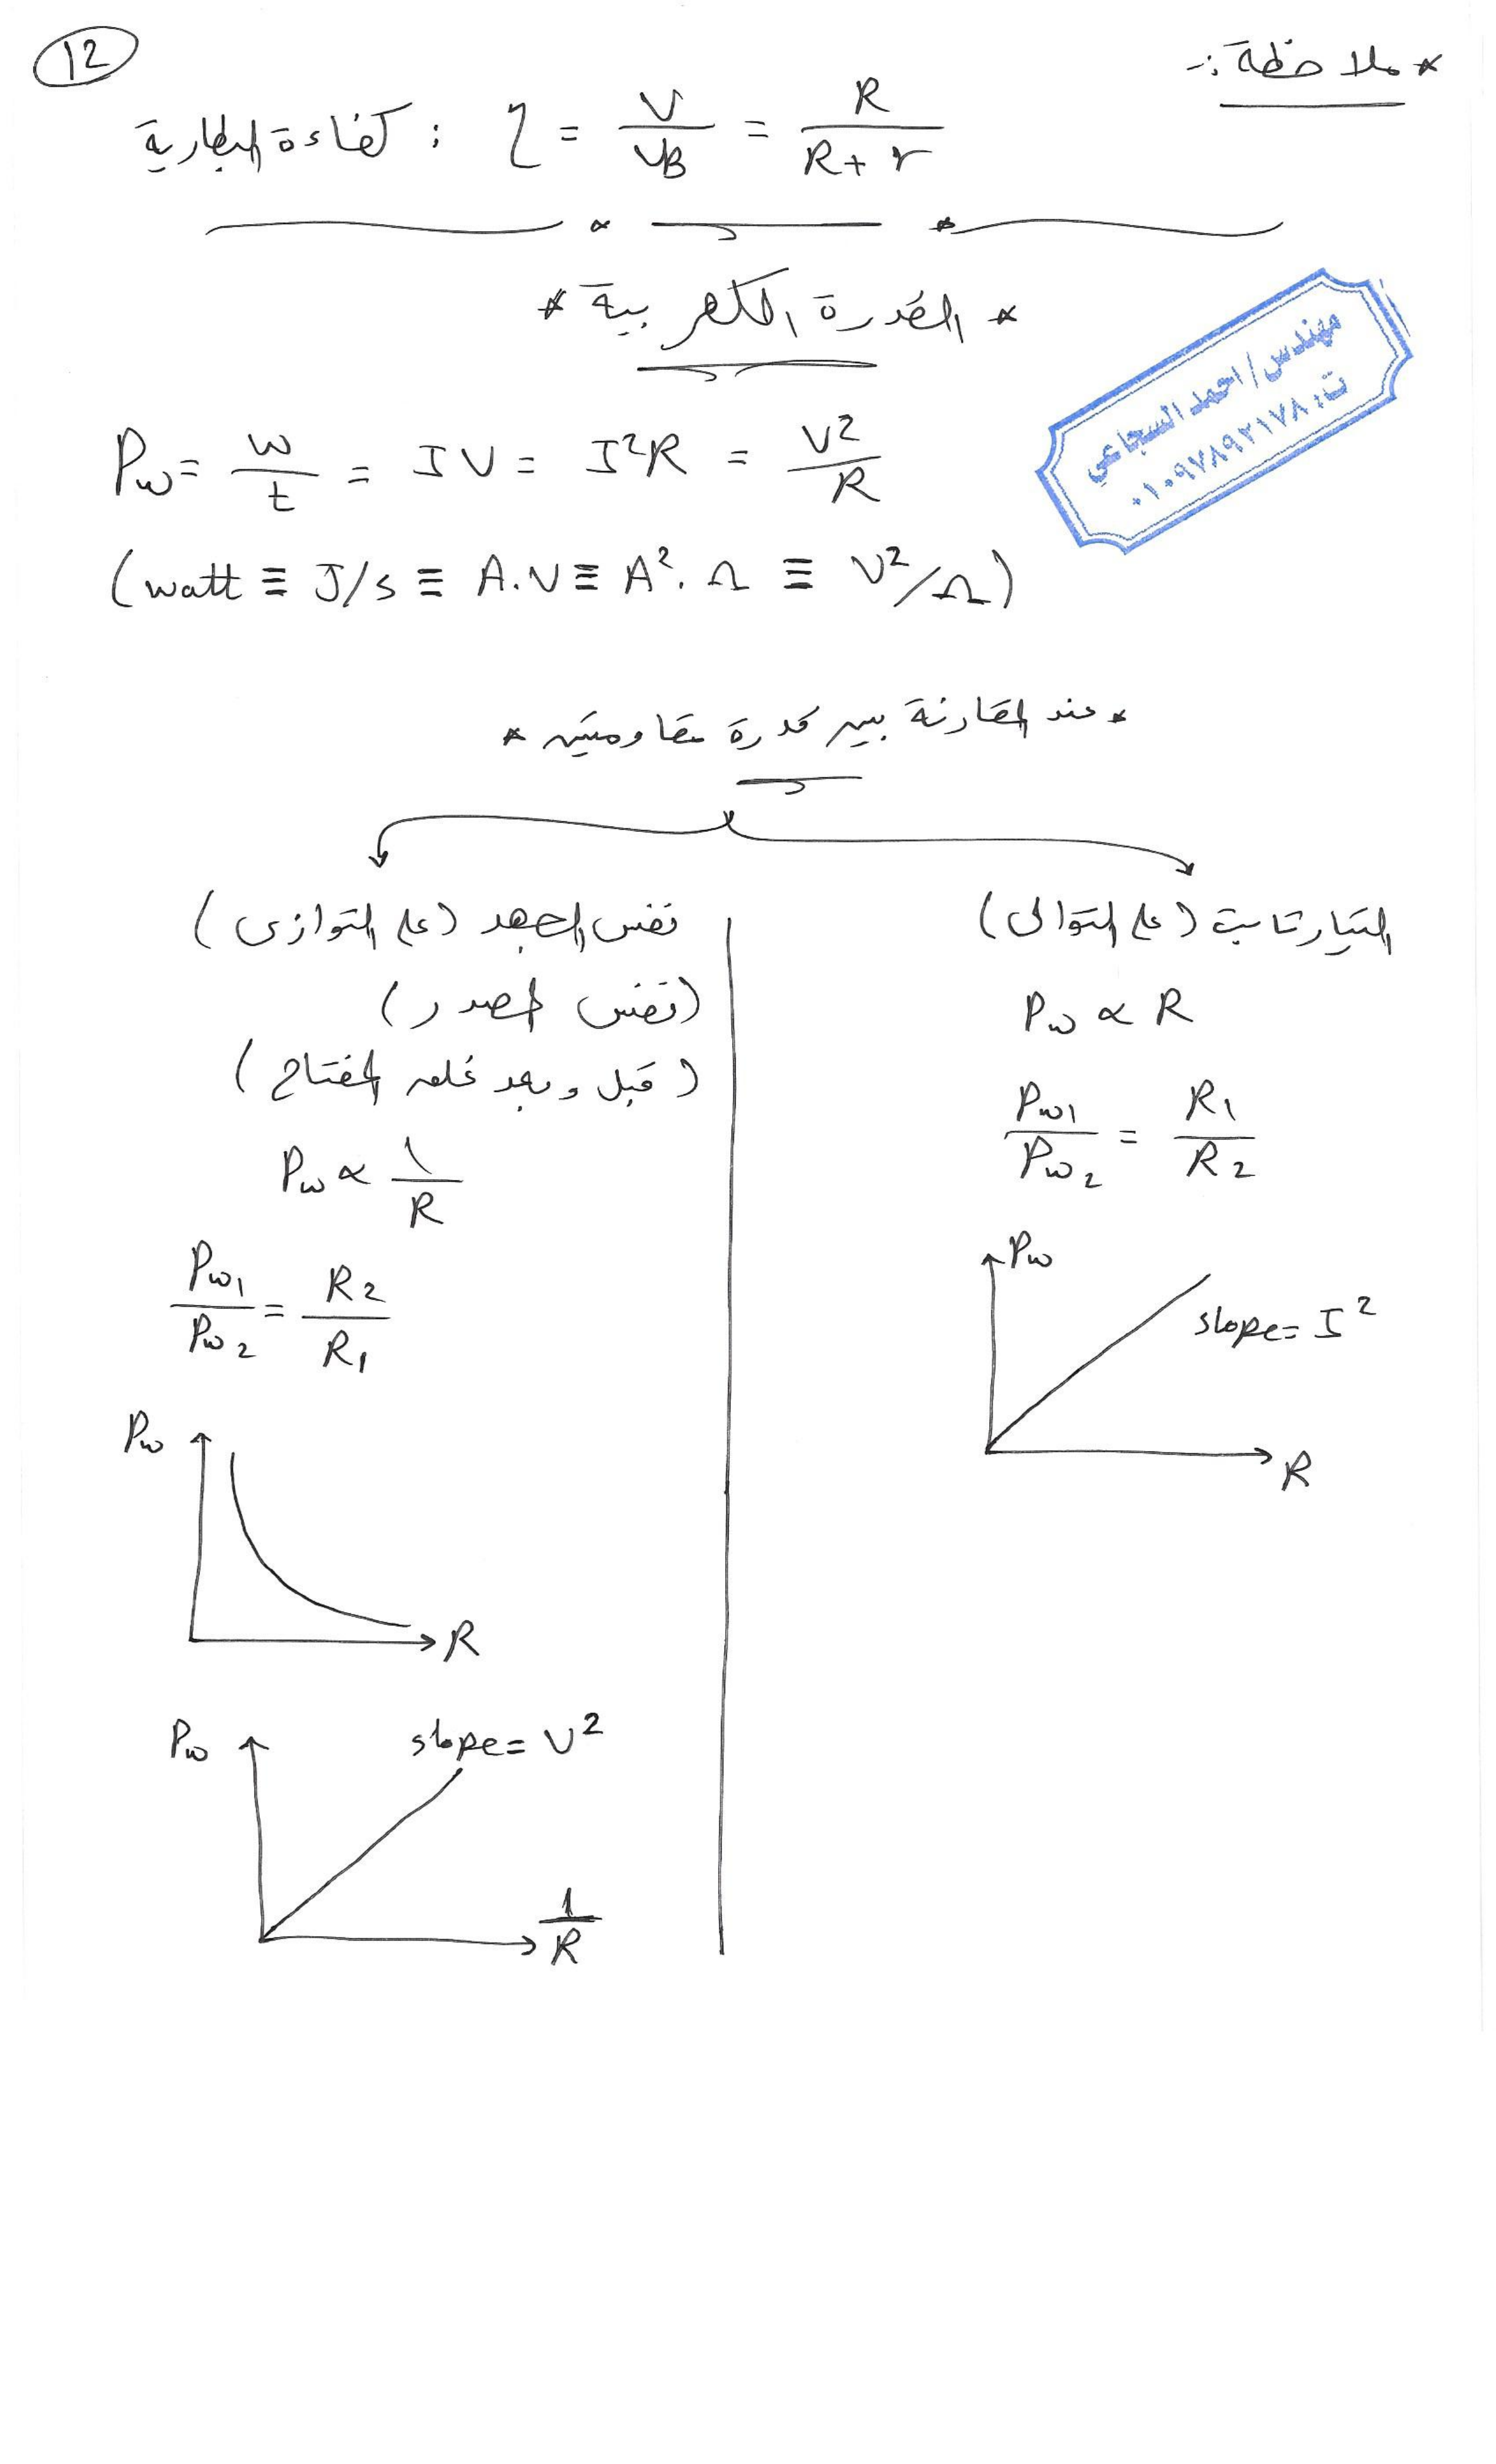 12
* ملاحظة :-
كفاءة البطارية : η = V/VB = R/(R + r)
* القدرة الكهربية *
مهندس / احمد السجاعي
ت: ٠١٠٩٧٨٩٢١٧٨
Pw = W/t = IV = I²R = V²/R
(watt ≡ J/s ≡ A.V ≡ A².Ω ≡ V²/Ω)
* عند المقارنة بين قدرة مقاومتين *
التيار ثابت (على التوالى)
Pw ∝ R
Pw1/Pw2 = R1/R2
Pw
slope = I²
R
نفس الجهد (على التوازى)
(نفس المصدر)
(قبل وبعد غلق المفتاح)
Pw ∝ 1/R
Pw1/Pw2 = R2/R1
Pw
R
Pw
slope = V²
1/R